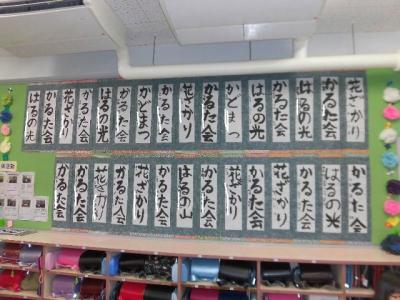 はるの光
かるた会
花ざかり
かるた会
はるの光
かるた会
かどまつ
かるた会
花ざかり
かるた会
かどまつ
かるた会
はるの光
かるた会
花ざかり
かるた会
かるた会
花ざかり
かるた会
花ざかり
かるた会
はるの山
かるた会
花ざかり
かるた会
花ざかり
かるた会
はるの光
かるた会